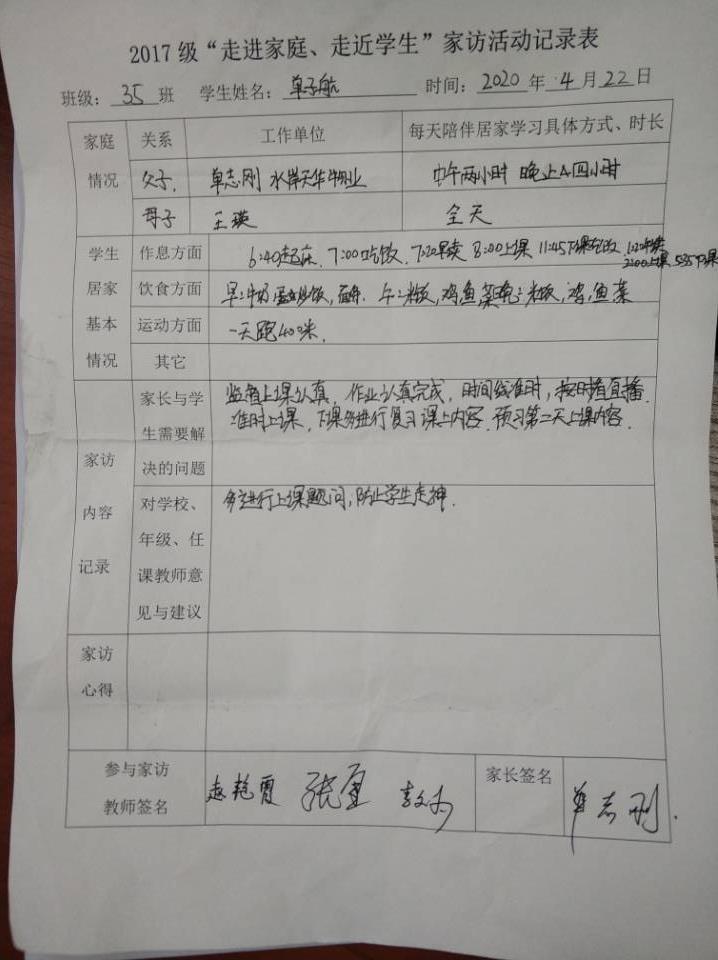 2017级“走进家庭、走近学生”家访活动记录表
班级：35班 学生姓名：单子航 时间：2020年4月22日
家庭情况 关系 工作单位 每天陪伴居家学习具体方式、时长
父子. 单志刚 水岸天华物业 中午两小时 晚上4四小时
母子 王瑛 全天
学生居家基本情况 作息方面 6:40起床. 7:00吃饭. 7:20早读 8:00上课 11:45下课吃饭 1:20午读
2:00上课 5:35下课
饮食方面 早:牛奶 炒饭, 午:米饭, 鸡鱼菜 晚:米饭, 鸡,鱼菜
运动方面 一天跑400米.
其它
家访内容记录 家长与学生需要解决的问题 监督上课认真, 作业认真完成, 时间线准时, 按时看直播.
准时上课, 下课多进行复习课上内容. 预习第二天上课内容.
对学校、年级、任课教师意见与建议 多进行上课题问, 防止学生走神.
家访心得
参与家访教师签名 赵艳霞 张 家长签名 单志刚.